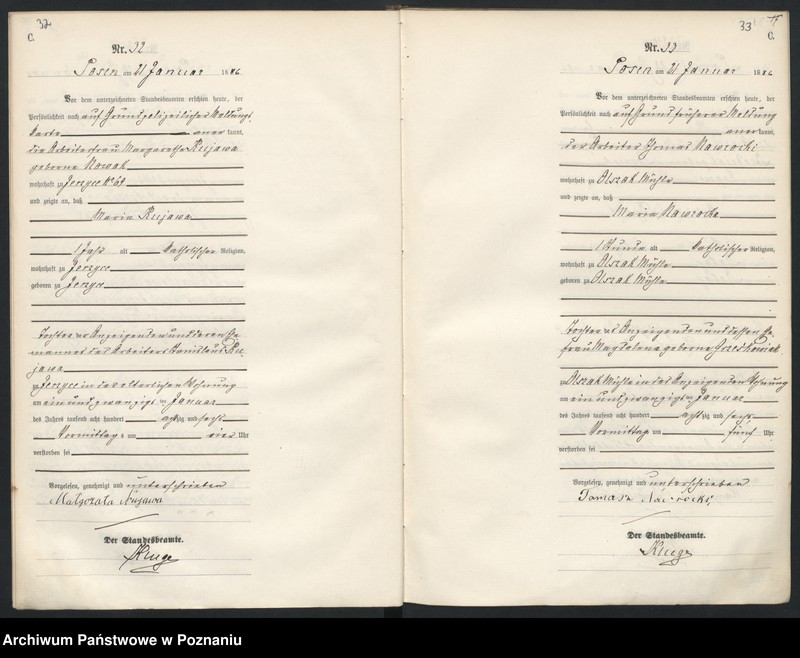 32
C.
Nr. 32
Posen am 21 Januar 1886
Vor dem unterzeichneten Standesbeamten erschien heute, der
Persönlichkeit nach auf Grund polizeilicher Meldungs
karte anerkannt,
die Arbeiterfrau Margarethe Kujawa
geborne Nowak
wohnhaft zu Jerzyce № 69
und zeigte an, daß
Maria Kujawa
1 Jahr alt katholischer Religion,
wohnhaft zu Jerzyce
geboren zu Jerzyce
Tochter der Anzeigenden und deren Ehe
mannes des Arbeiters Stanislaus Ku
jawa
zu Jerzyce in der elterlichen Wohnung
am ein und zwanzigsten Januar
des Jahres tausend acht hundert achtzig und sechs
Vormittags um vier Uhr
verstorben sei
Vorgelesen, genehmigt und unterschrieben
Małgorzata Kujawa
Der Standesbeamte.
Kluge
33
C.
Nr. 33
Posen am 21 Januar 1886
Vor dem unterzeichneten Standesbeamten erschien heute, der
Persönlichkeit nach auf Grund früherer Meldung
anerkannt,
der Arbeiter Thomas Nawrocki
wohnhaft zu Olszak Mühle
und zeigte an, daß
Maria Nawrocka
1 Stunde alt katholischer Religion,
wohnhaft zu Olszak Mühle
geboren zu Olszak Mühle
Tochter des Anzeigenden und dessen Ehe
frau Magdalena geborne Grześkowiak
zu Olszak Mühle in des Anzeigenden Wohnung
am ein und zwanzigsten Januar
des Jahres tausend acht hundert achtzig und sechs
Vormittags um fünf Uhr
verstorben sei
Vorgelesen, genehmigt und unterschrieben
Tomasz Nawrocki
Der Standesbeamte.
Kluge
Archiwum Państwowe w Poznaniu